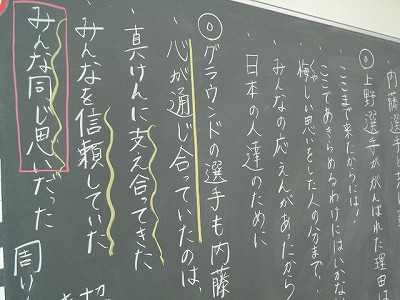 内藤選手と
◎上野選手ががんばれた理由は
・ここまで来たからには!
・ここであきらめるわけにはいかな
・悔しい思いをした人の分まで、
くや
・みんなの応えんがあたから
・日本の人達のために
◎グラウンドの選手も内藤
心が通じ合っていたのは、
・真けんに支え合ってきた
・みんなを信頼していた
・みんな同じ思いだった
周り
切